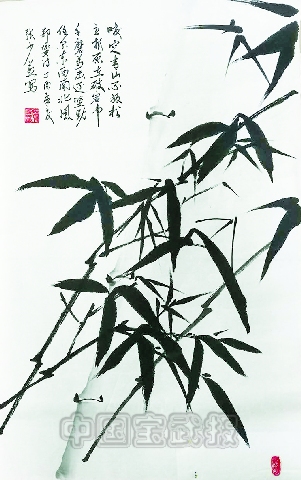 咬定青山不放松
立根原在破岩中
千磨万击还坚劲
任尔东西南北风
郑燮诗丁酉
中国宝武报